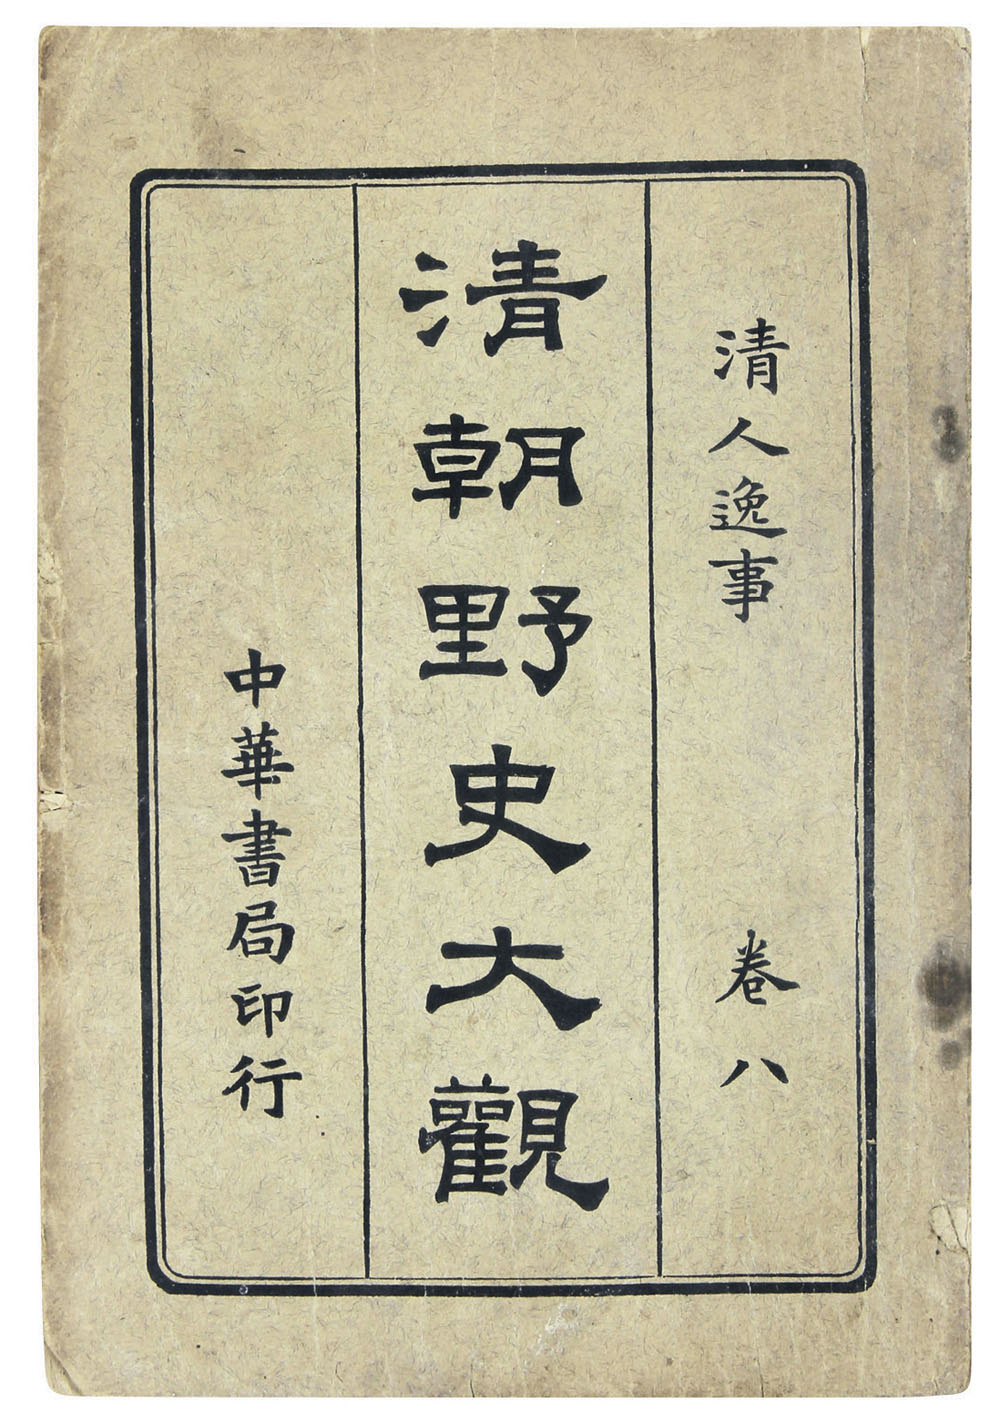 清人逸事 卷八
清朝野史大觀
中華書局印行